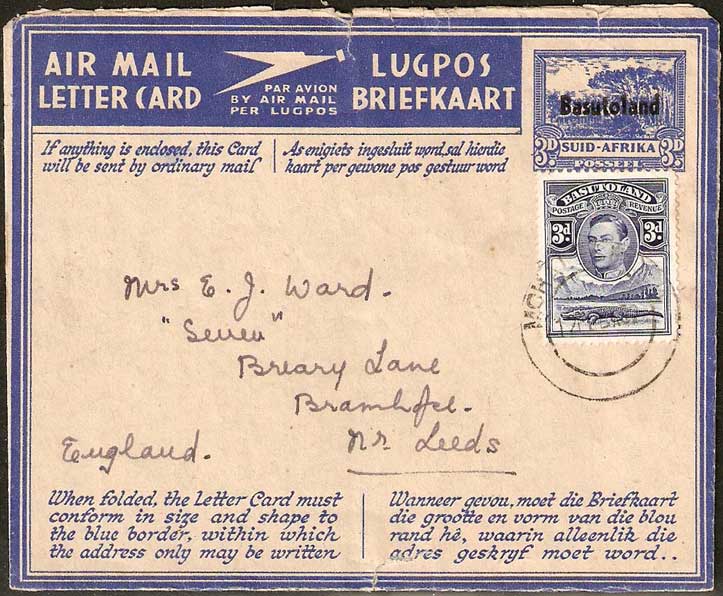 AIR MAIL
LETTER CARD
PAR AVION
BY AIR MAIL
PER LUGPOS
LUGPOS
BRIEFKAART
Basutoland
3D SUID-AFRIKA 3D
POSSEEL
If anything is enclosed, this Card
will be sent by ordinary mail
As enigiets ingesluit word, sal hierdie
kaart per gewone pos gestuur word
BASUTOLAND
POSTAGE REVENUE
3d 3d
Mrs E. J. Ward.
Breary Lane
Bramhope.
Nr Leeds
England.
When folded, the Letter Card must
conform in size and shape to
the blue border, within which
the address only may be written
Wanneer gevou, moet die Briefkaart
die grootte en vorm van die blou
rand hê, waarin alleenlik die
adres geskryf moet word..